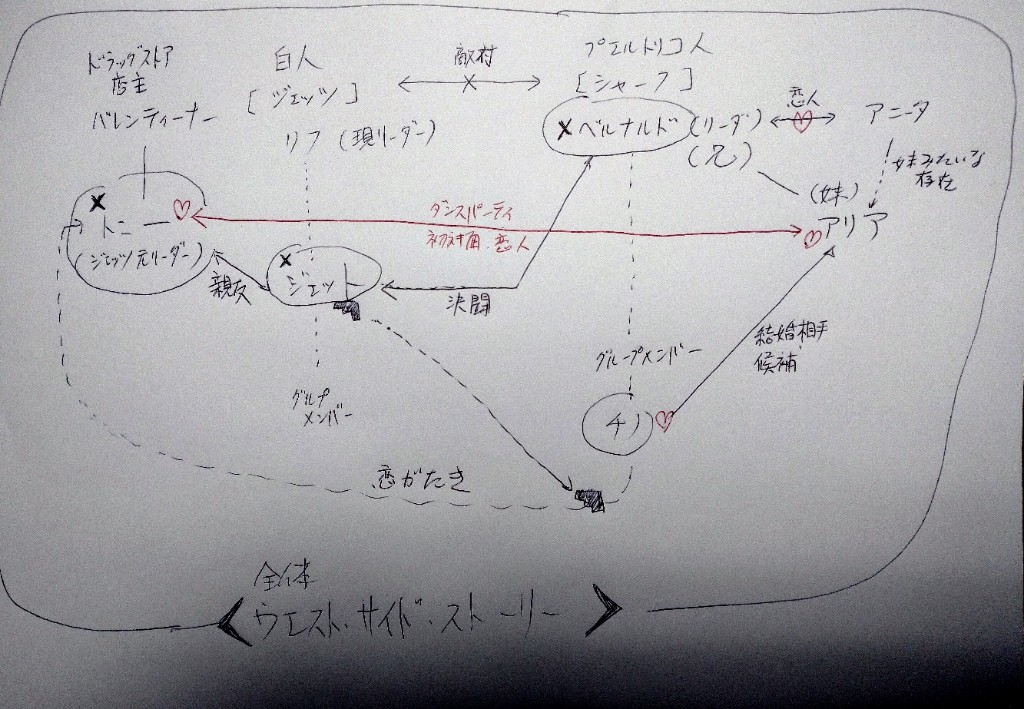 ドラッグストア
店主
バレンティーナー
白人
[ジェッツ]
リフ(現リーダー)
敵村
プエルトリコ人
[シャーク]
×ベルナルド(リーダ)
(兄)
恋人
アニータ
妹みたいな
存在
(妹)
アリア
×
トニー
(ジェッツ元リーダー)
ダンスパーティ
初対面・恋人
親友
×
ジェット
決闘
グループメンバー
結婚相手
候補
グループ
メンバー
チノ
恋がたき
全体
ウエスト・サイド・ストーリー